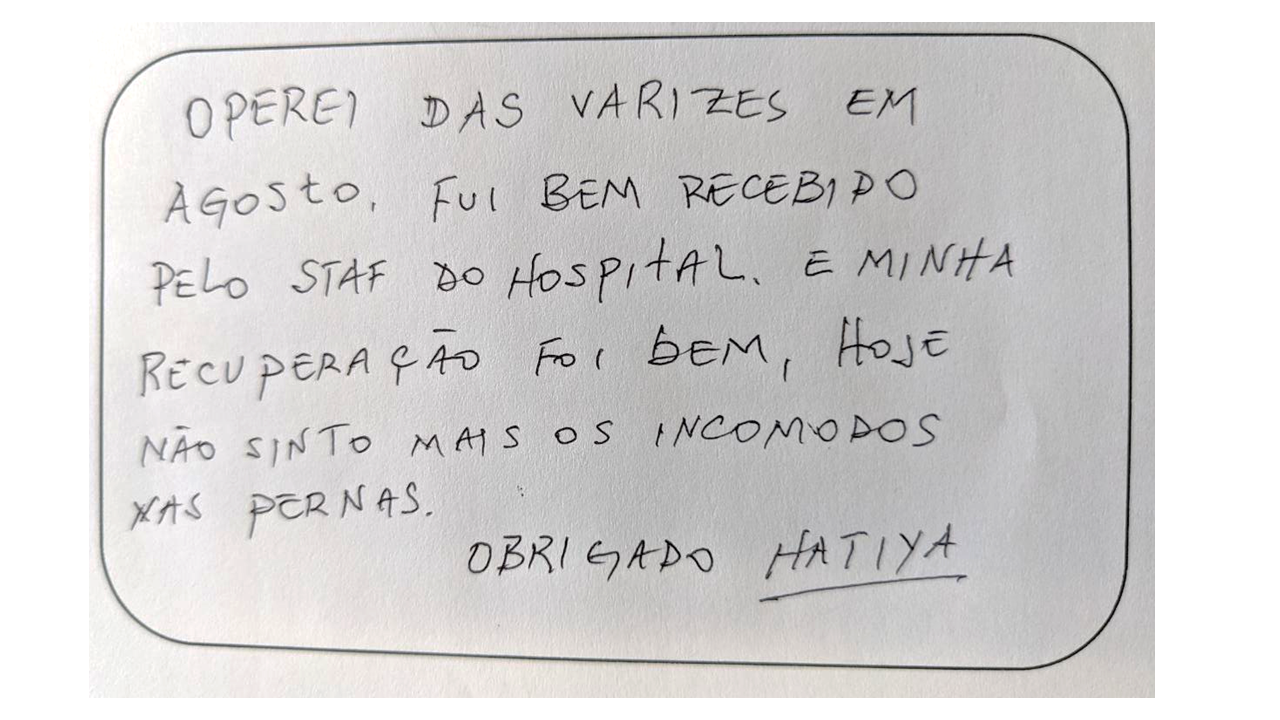 OPEREI DAS VARIZES EM
AGOSTO. FUI BEM RECEBIDO
PELO STAF DO HOSPITAL. E MINHA
RECUPERAÇÃO FOI BEM, HOJE
NÃO SINTO MAIS OS INCOMODOS
NAS PERNAS.
OBRIGADO HATIYA